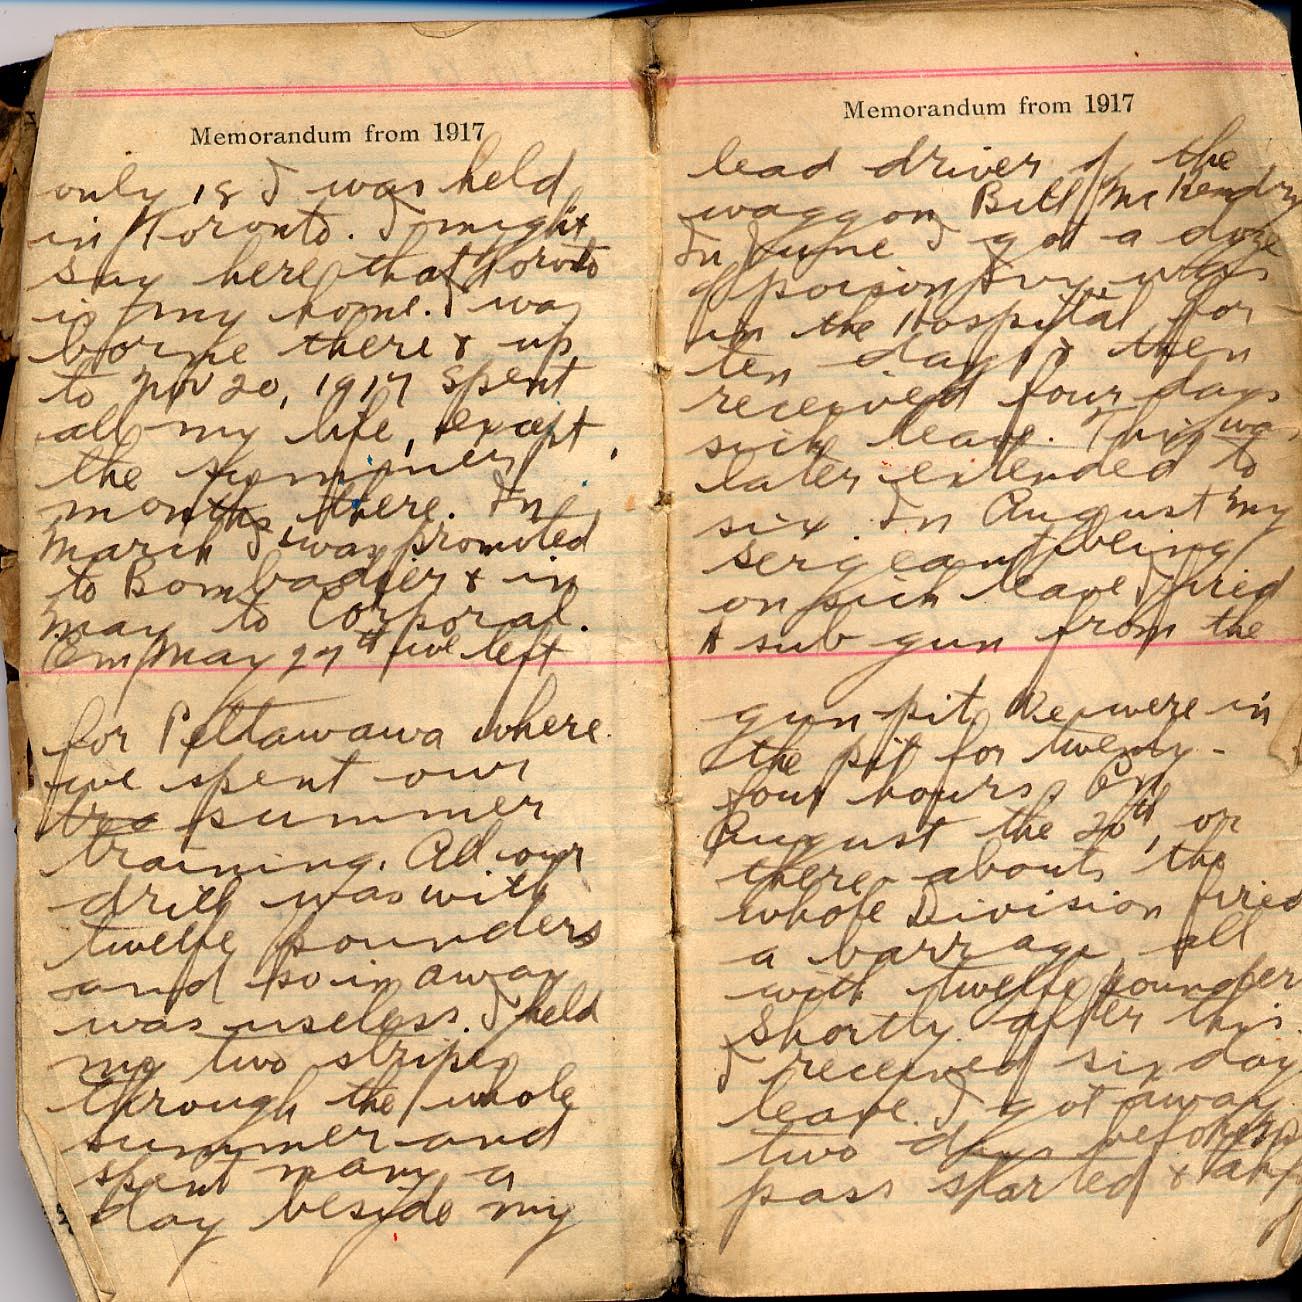 Memorandum from 1917
only 18 I was held
in Toronto. I might
say here that Toronto
is my home. I was
borne there & up
to Nov 20, 1917 spent
all my life, except
the summer
months, there. In
March I was promoted
to Bombadier & in
May to Corporal.
On May 27th we left
for Pettawawa where
we spent our
tra summer
training. All our
drill was with
twelve pounders
and so in away
was useless. I held
my two stripes
through the whole
summer and
spent many a
day beside my
Memorandum from 1917
lead driver of the
waggon, Bill McKendry
In June I got a doze
of poison Ivy was
in the Hospital for
ten days & then
received four days
sick leave. This was
later extended to
six In August my
sergeant being
on sick leave I fired
A sub gun from the
gun pit. We were in
the pit for twenty-
four hours. On
August the 20th, or
there abouts the
whole Division fired
a barrage, all
with twelve pounder
Shortly after this
I received six day
leave. I got away
two days before
pass started &